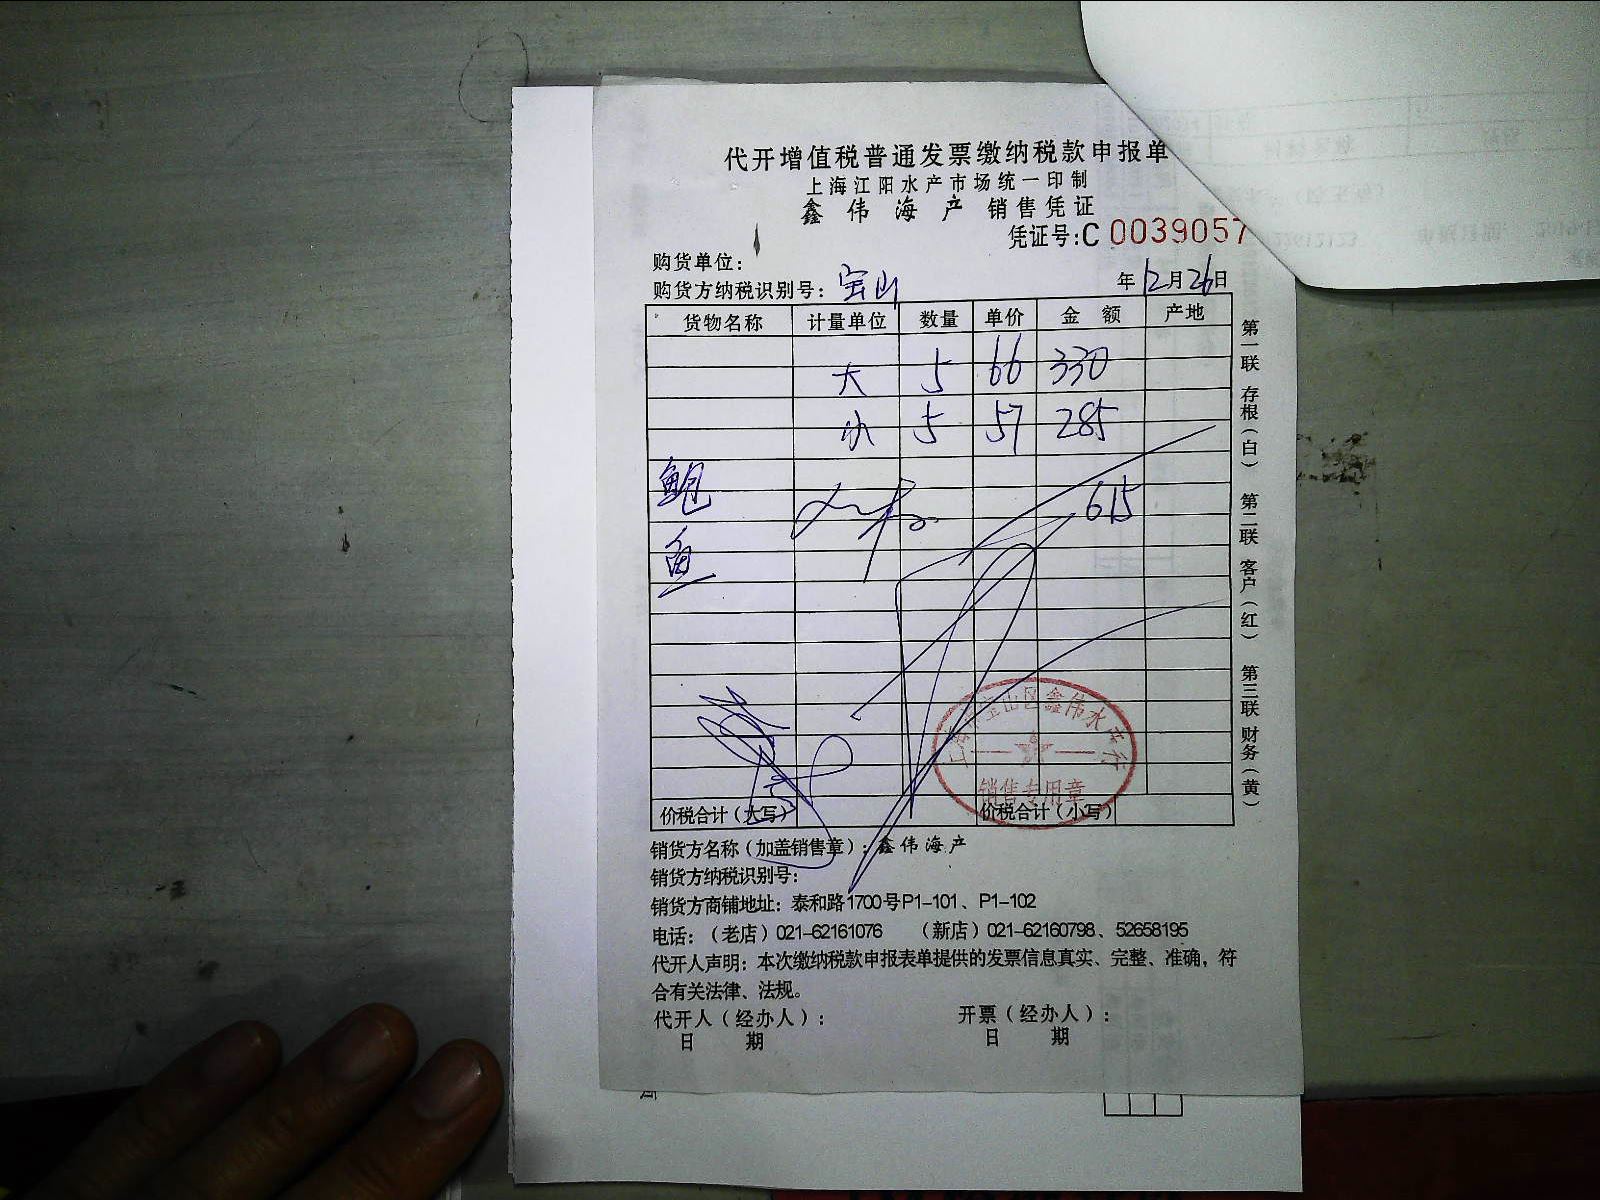 代开增值税普通发票缴纳税款申报单
上海江阳水产市场统一印制
鑫伟海产 销售凭证
凭证号:C 0039057
购货单位:
购货方纳税识别号: 宝山 年12月26日
货物名称 计量单位 数量 单价 金额 产地
大 5 66 330
小 5 57 285
鲍 615
鱼
价税合计(大写) 价税合计(小写)
上海市宝山区鑫伟水产行
销售专用章
第一联 存根(白) 第二联 客户(红) 第三联 财务(黄)
销货方名称(加盖销售章): 鑫伟海产
销货方纳税识别号:
销货方商铺地址: 泰和路1700号P1-101、P1-102
电话:(老店)021-62161076 (新店)021-62160798、52658195
代开人声明: 本次缴纳税款申报表单提供的发票信息真实、完整、准确,符
合有关法律、法规。
代开人(经办人): 开票(经办人):
日 期 日 期